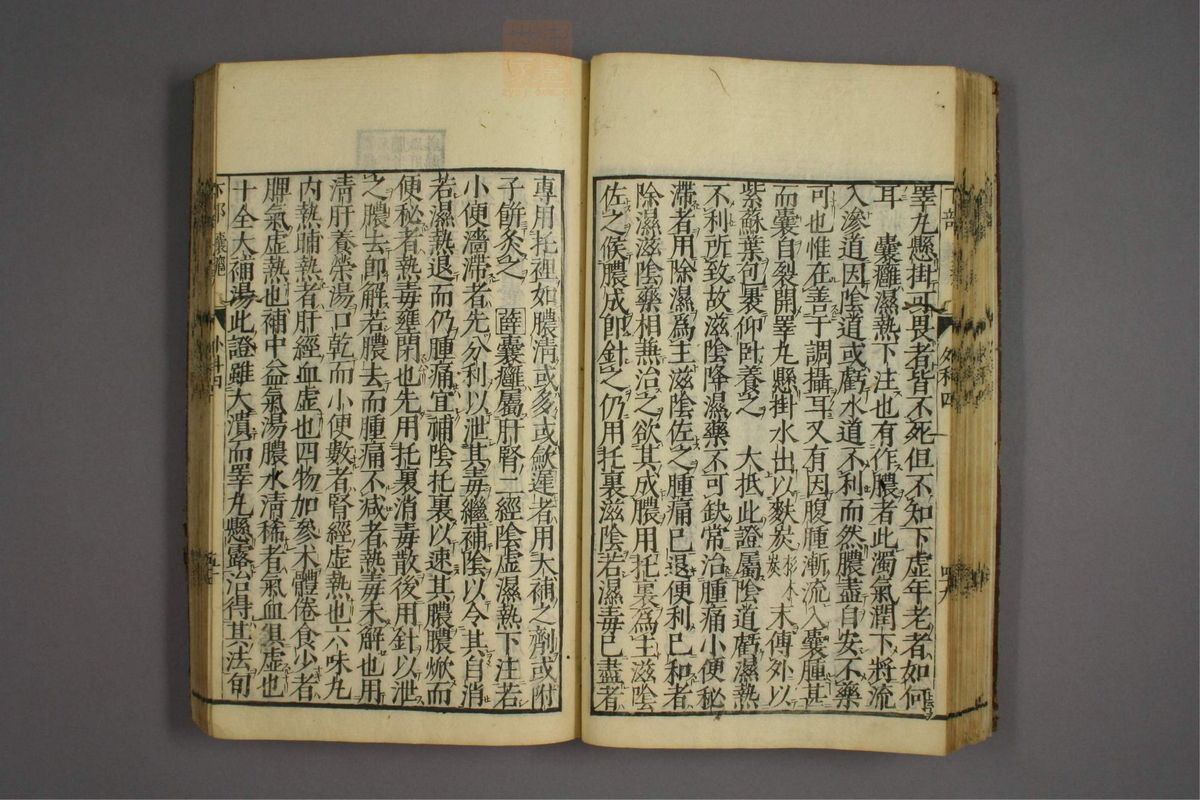 睪丸懸掛可畏者皆不死但不知下虛年老者如何
耳　囊癰濕熱下注也有作膿者此濁氣潤下將流
入滲道因陰道或虧水道不利而然膿盡自安不藥
可也惟在善于調攝耳又有因腹腫漸流入囊腫甚
而囊自裂開睪丸懸掛水出以麩炭杉木炭末傅外以
紫蘇葉包裹仰臥養之　大抵此證屬陰道虧濕熱
不利所致故滋陰降濕藥不可缺常治腫痛小便秘
滯者用除濕爲主滋陰佐之腫痛已退便利已和者
除濕滋陰藥相兼治之欲其成膿用托裏爲主滋陰
佐之候膿成卽針之仍用托裏滋陰若濕毒已盡者
外科四
專用托裡如膿淸或多或歛遲者用大補之劑或附
子餅灸之　薛囊癰屬肝腎二經陰虛濕熱下注若
小便澀滯者先分利以泄其毒繼補陰以令其自消
若濕熱退而仍腫痛宜補陰托裏以速其膿膿焮而
便秘者熱毒壅閉也先用托裏消毒散後用針以泄
之膿去卽解若膿去而腫痛不減者熱毒未解也用
淸肝養榮湯口乾而小便數者腎經虛熱也六味丸
內熱晡熱者肝經血虛也四物加參朮體倦食少者
脾氣虛熱也補中益氣湯膿水淸稀者氣血俱虛也
十全大補湯此證雖大潰而睪丸懸露治得其法旬